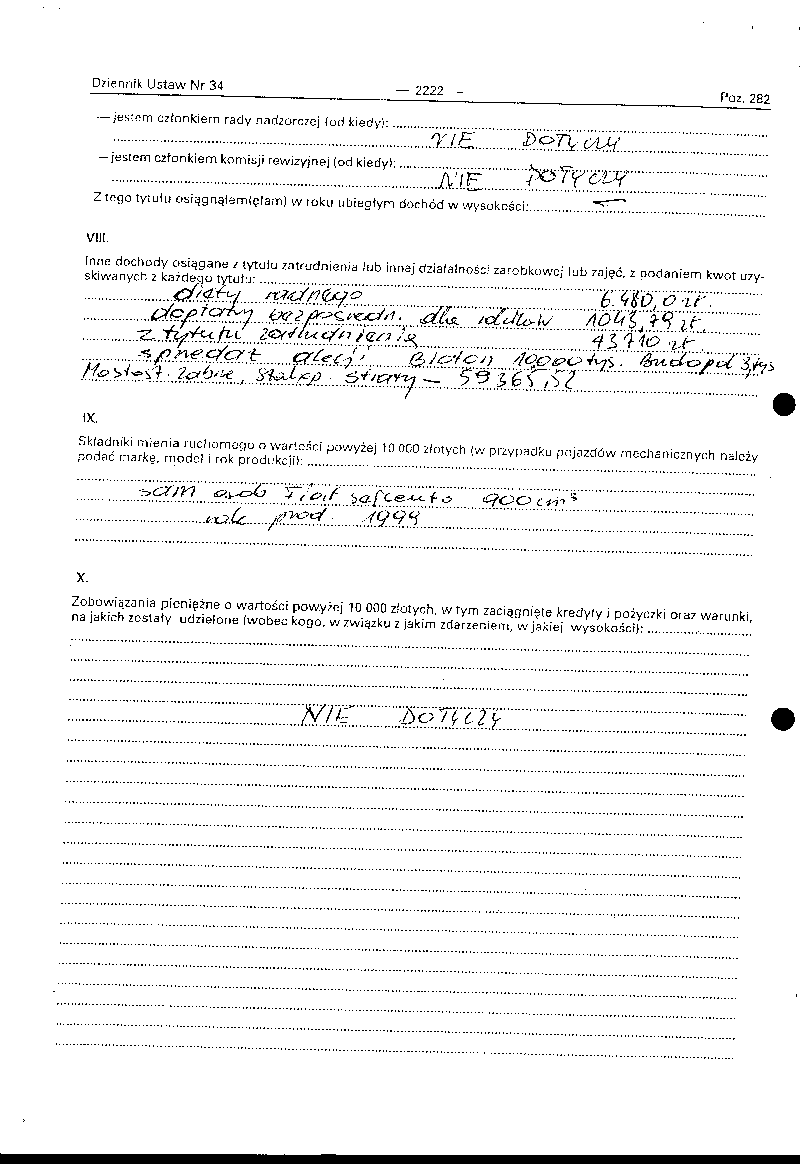 Dziennik Ustaw Nr 34 — 2222 – Poz. 282
— jestem członkiem rady nadzorczej (od kiedy):
NIE DOTYCZY
— jestem członkiem komisji rewizyjnej (od kiedy):
NIE DOTYCZY
Z tego tytułu osiągnąłem(ęłam) w roku ubiegłym dochód w wysokości: —
VIII.
Inne dochody osiągane z tytułu zatrudnienia lub innej działalności zarobkowej lub zajęć, z podaniem kwot uzy-
skiwanych z każdego tytułu:
diety radnego 6.480,0 zł.
dopłaty bezpośredn. dla 1043,79 zł.
z tytułu zatrudnienia 43710 zł
sprzedaż akcji Bioton 10000 tys. Budopol 3 tys
Mostost. Zabrze, Stalexp. straty – 59365,52
IX.
Składniki mienia ruchomego o wartości powyżej 10 000 złotych (w przypadku pojazdów mechanicznych należy
podać markę, model i rok produkcji):
sam osob Fiat 900 cm³
rok prod. 1999
X.
Zobowiązania pieniężne o wartości powyżej 10 000 złotych, w tym zaciągnięte kredyty i pożyczki oraz warunki,
na jakich zostały udzielone (wobec kogo, w związku z jakim zdarzeniem, w jakiej wysokości):
NIE DOTYCZY